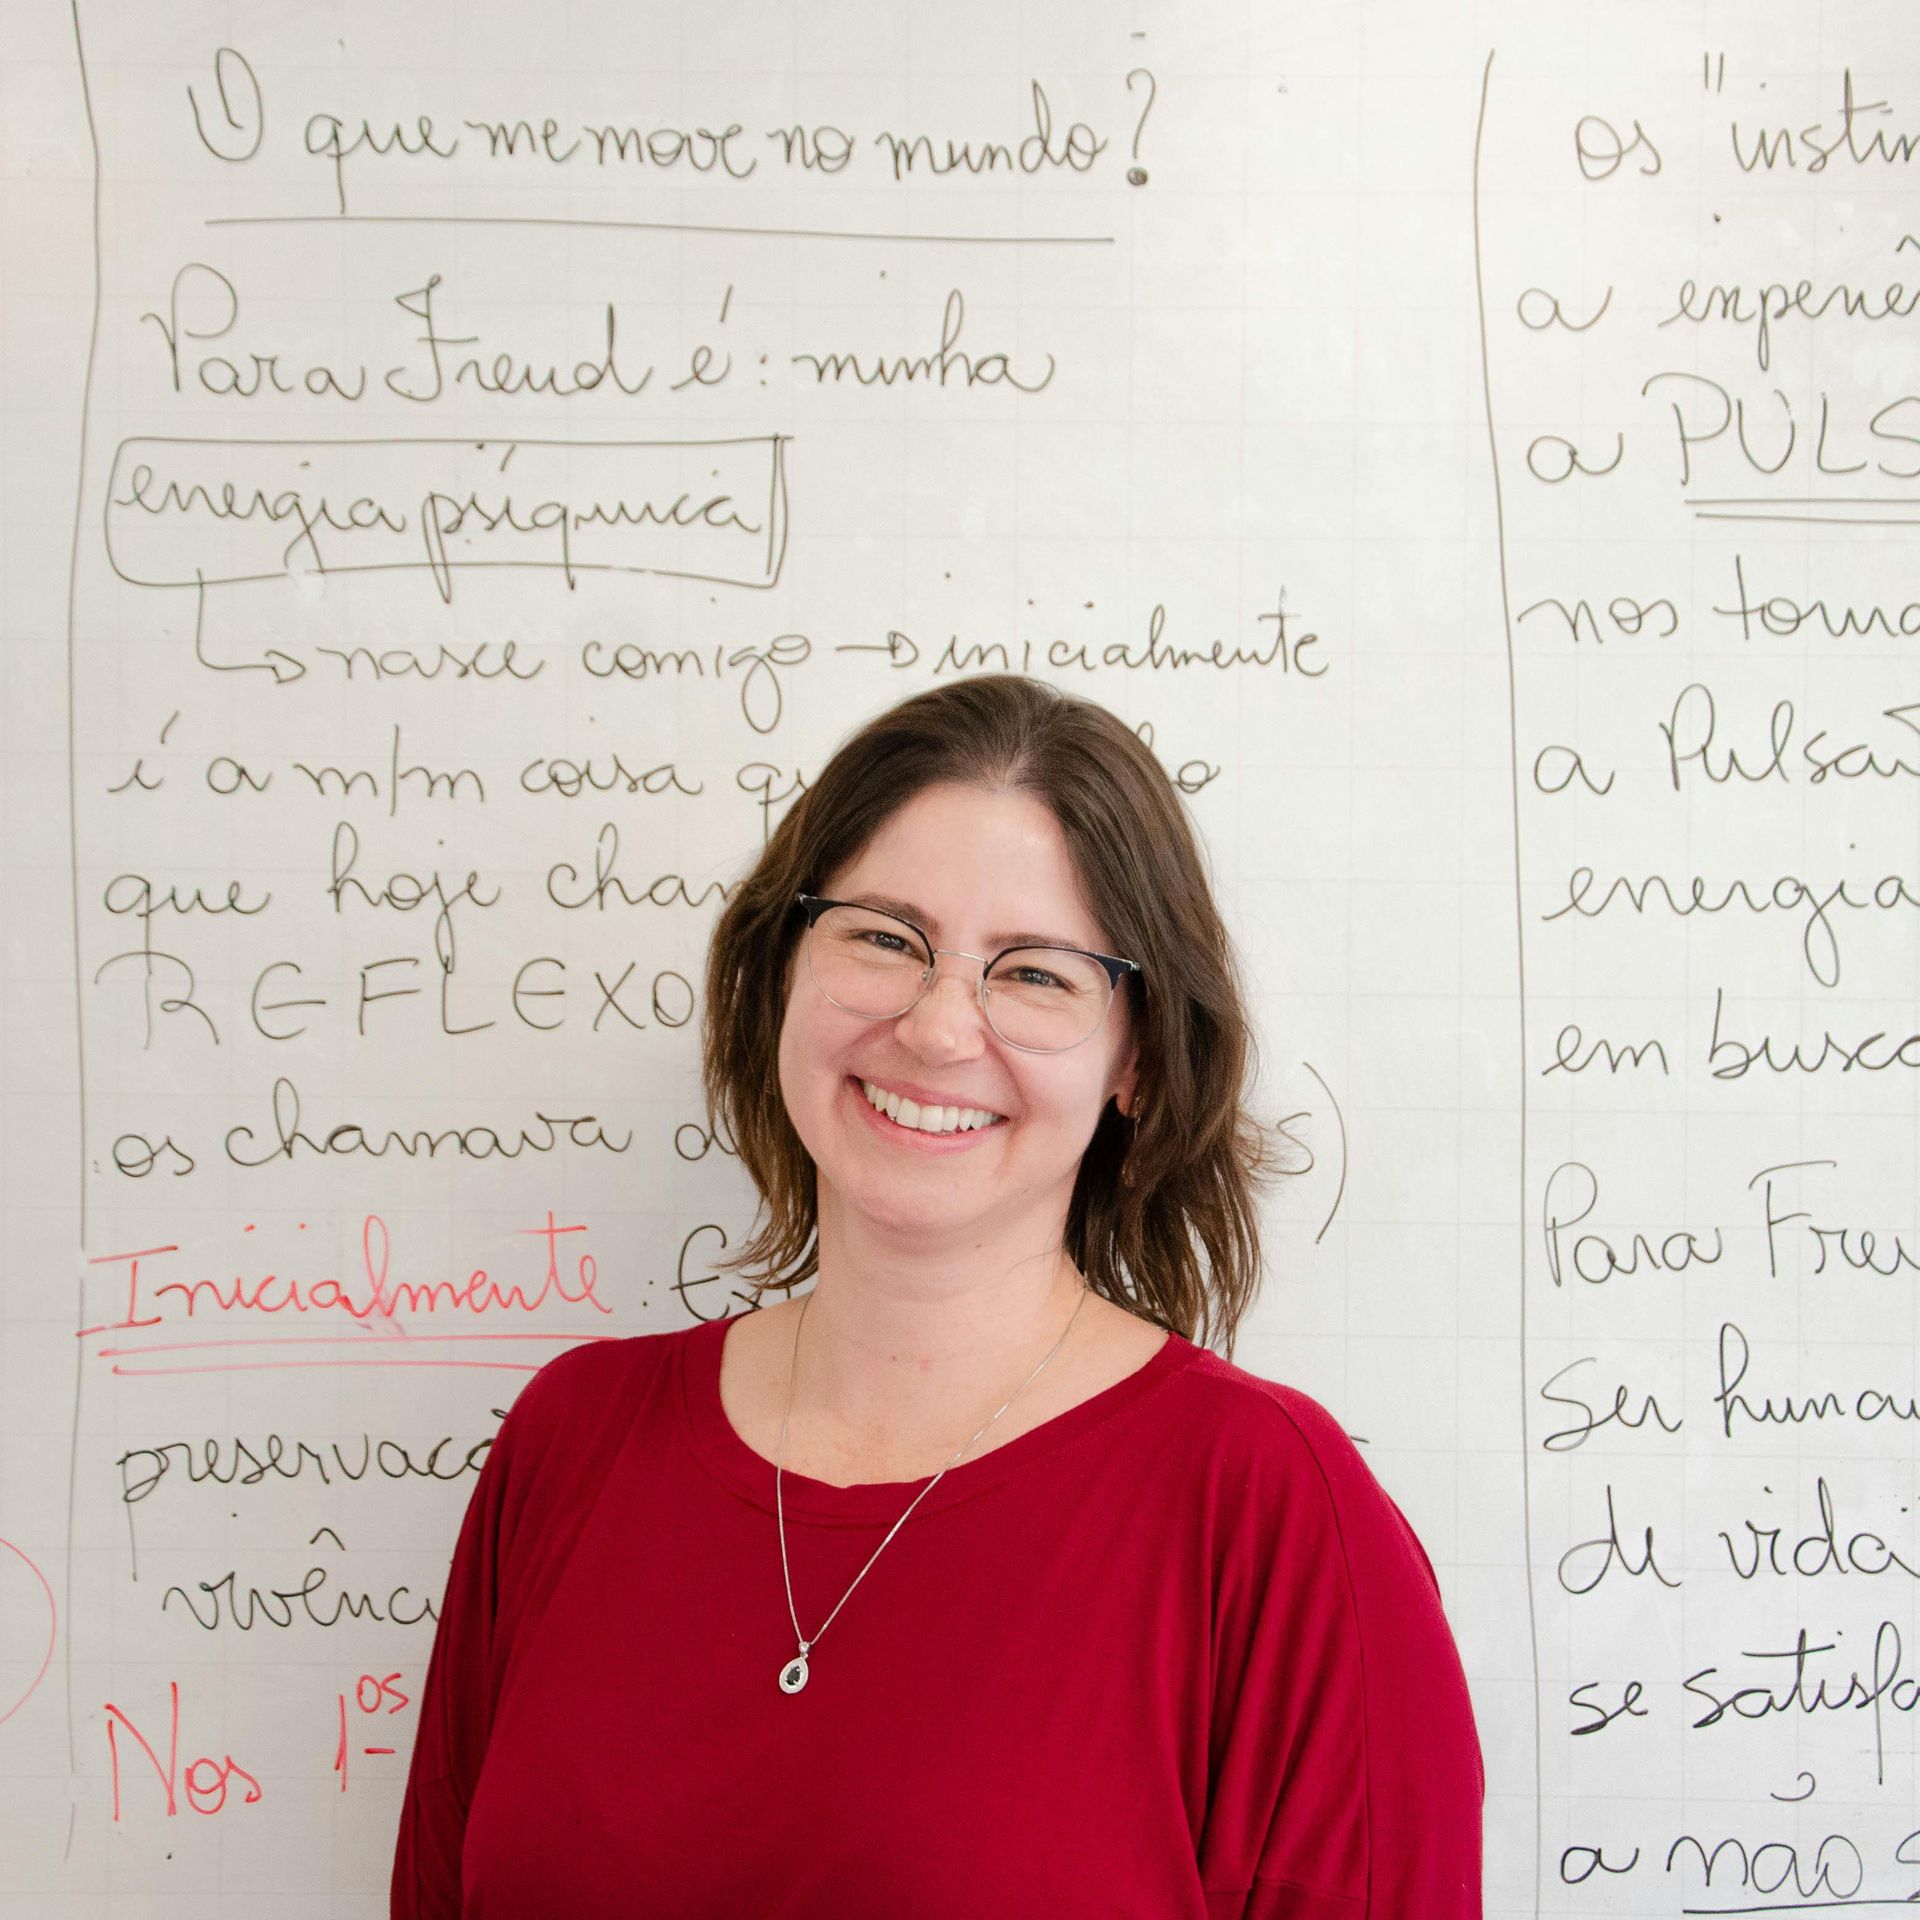 O que me move no mundo?
Para Freud é: minha
energia psíquica
nasce comigo → inicialmente
é a m/m coisa
que hoje
REFLEXO
os chamava
Inicialmente:
vivênci
Nos 1os
os "instin
a experiê
a PULS
nos torna
a Pulsão
energia
em busca
Para Freu
Ser human
de vida
se satisfa
a não s